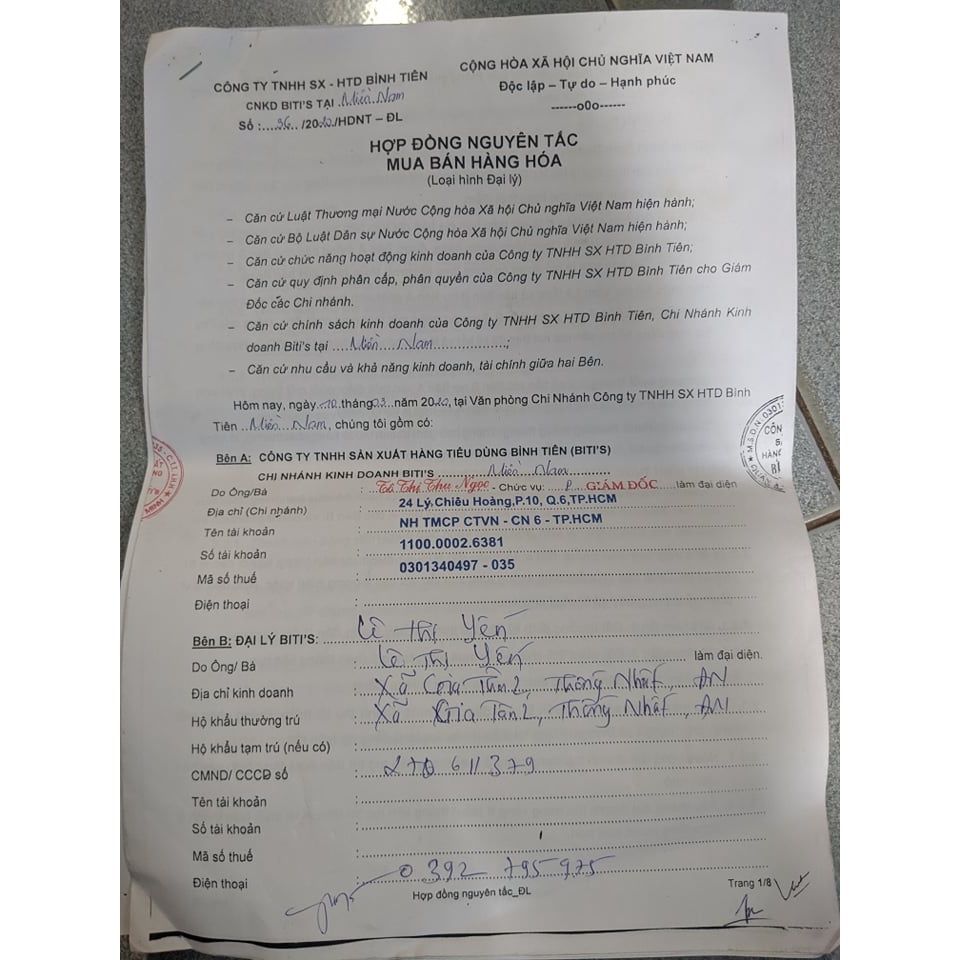 CÔNG TY TNHH SX - HTD BÌNH TIÊN
CNKD BITI'S TẠI Miền Nam
Số :....36.. /2020/HDNT – ĐL
CỘNG HÒA XÃ HỘI CHỦ NGHĨA VIỆT NAM
Độc lập – Tự do – Hạnh phúc
------o0o------
HỢP ĐỒNG NGUYÊN TẮC
MUA BÁN HÀNG HÓA
(Loại hình Đại lý)
– Căn cứ Luật Thương mại Nước Cộng hòa Xã hội Chủ nghĩa Việt Nam hiện hành;
– Căn cứ Bộ Luật Dân sự Nước Cộng hòa Xã hội Chủ nghĩa Việt Nam hiện hành;
– Căn cứ chức năng hoạt động kinh doanh của Công ty TNHH SX HTD Bình Tiên;
– Căn cứ quy định phân cấp, phân quyền của Công ty TNHH SX HTD Bình Tiên cho Giám
Đốc các Chi nhánh.
– Căn cứ chính sách kinh doanh của Công ty TNHH SX HTD Bình Tiên, Chi Nhánh Kinh
doanh Biti's tại ....Miền Nam..................;
– Căn cứ nhu cầu và khả năng kinh doanh, tài chính giữa hai Bên.
Hôm nay, ngày 10 tháng 03 năm 2020, tại Văn phòng Chi Nhánh Công ty TNHH SX HTD Bình
Tiên ..Miền Nam., chúng tôi gồm có:
Bên A: CÔNG TY TNHH SẢN XUẤT HÀNG TIÊU DÙNG BÌNH TIÊN (BITI'S)
CHI NHÁNH KINH DOANH BITI'S Miền Nam
Do Ông/Bà : Tô Thị Thu Ngọc - Chức vụ: P. GIÁM ĐỐC làm đại diện
Địa chỉ (Chi nhánh) : 24 Lý.Chiêu Hoàng,P.10, Q.6,TP.HCM
Tên tài khoản : NH TMCP CTVN - CN 6 - TP.HCM
Số tài khoản : 1100.0002.6381
Mã số thuế : 0301340497 - 035
Điện thoại :
Bên B: ĐẠI LÝ BITI'S: Lê Thị Yến
Do Ông/ Bà : Lê Thị Yến làm đại diện.
Địa chỉ kinh doanh : Xã Gia Tân 2, Thống Nhất, ĐN
Hộ khẩu thường trú : Xã Gia Tân 2, Thống Nhất, ĐN
Hộ khẩu tạm trú (nếu có) :
CMND/ CCCD số : 270 611 379
Tên tài khoản :
Số tài khoản :
Mã số thuế :
Điện thoại : 0392 795975
Hợp đồng nguyên tắc_ĐL
Trang 1/8